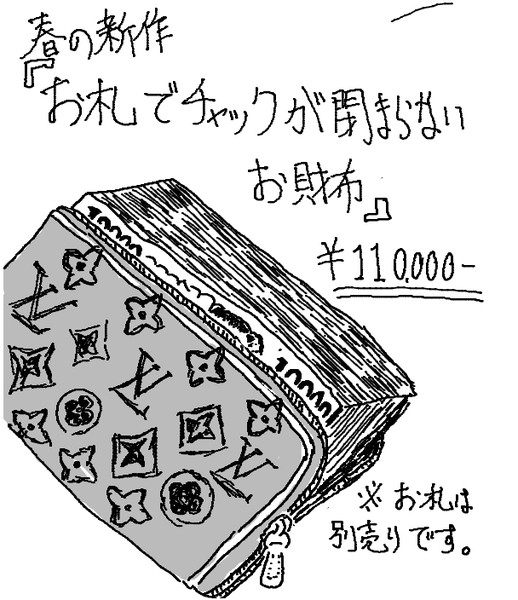 春の新作
『お札でチャックが閉まらない
お財布』
￥110,000-
10000
10000
LV
LV
LV
※お札は
別売りです。